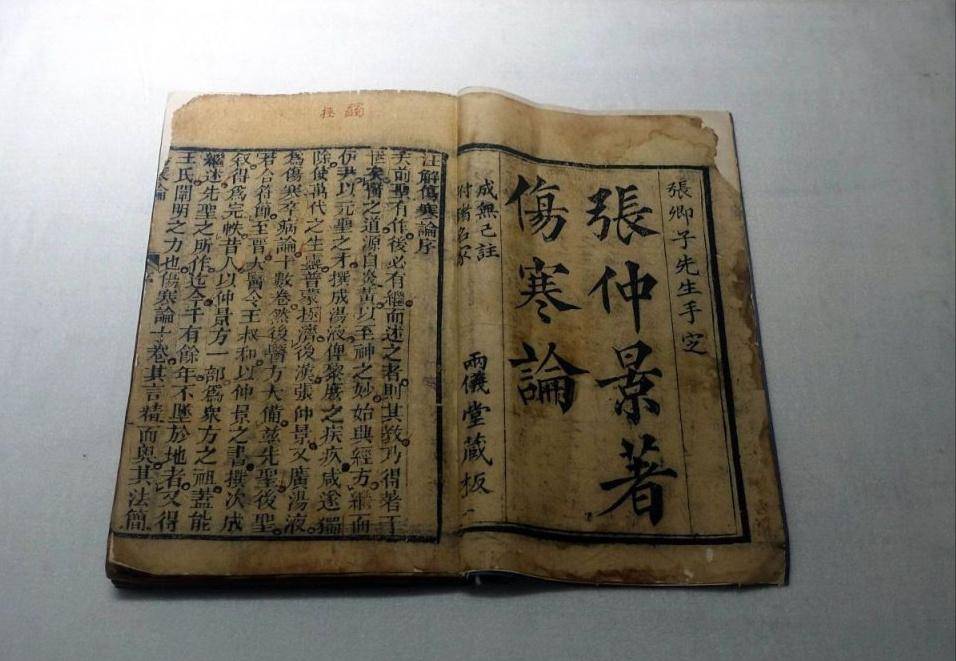 張卿子先生手定
張仲景著
傷寒論
成無己註
附諸名家
兩儀堂藏板
蠲 拯
注解傷寒論序
夫前聖有作後必有繼而述之者則其教乃得著于
世矣醫之道源自炎黃以至神之妙始興經方繼而
伊尹以元聖之才撰成湯液俾黎庶之疾疚咸遂獨
除使萬代之生靈普蒙極濟後漢張仲景又廣湯液
為傷寒卒病論十數卷然後醫方大備茲先聖後聖
若合符節至晉太醫令王叔和以仲景之書撰次成
敘得為完帙昔人以仲景方一部為衆方之祖蓋能
繼述先聖之所作迄今千有餘年不墜於地者又得
王氏闡明之力也傷寒論十卷其言精而奧其法簡